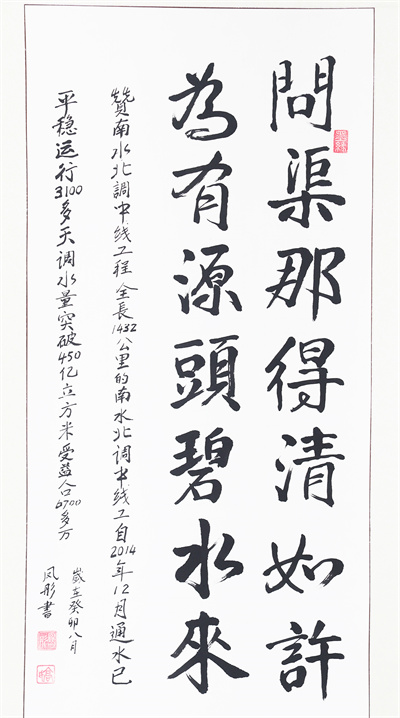 問渠那得清如許
為有源頭碧水來
贊南水北調中线工程全長1432公里的南水北调中线工自2014年12月通水已
平稳运行3100多天调水量突破450亿立方米受益人口6700多万
歲在癸卯八月
凤彤書